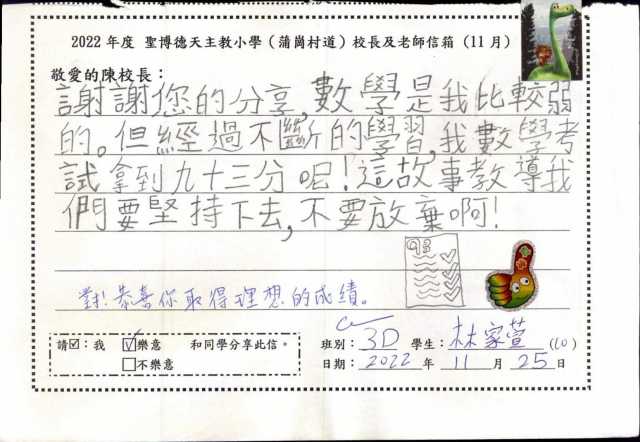 2022 年度 聖博德天主教小學（蒲崗村道）校長及老師信箱（11月）
敬愛的陳校長：
謝謝您的分享,數學是我比較弱
的。但經過不斷的學習,我數學考
試拿到九十三分呢!這故事教導我
們要堅持下去,不要放棄啊!
93
對!恭喜你取得理想的成績。
請☑：我 ☑樂意 和同學分享此信。
□不樂意
班別：3D 學生：林家萱(10)
日期：2022年11月25日